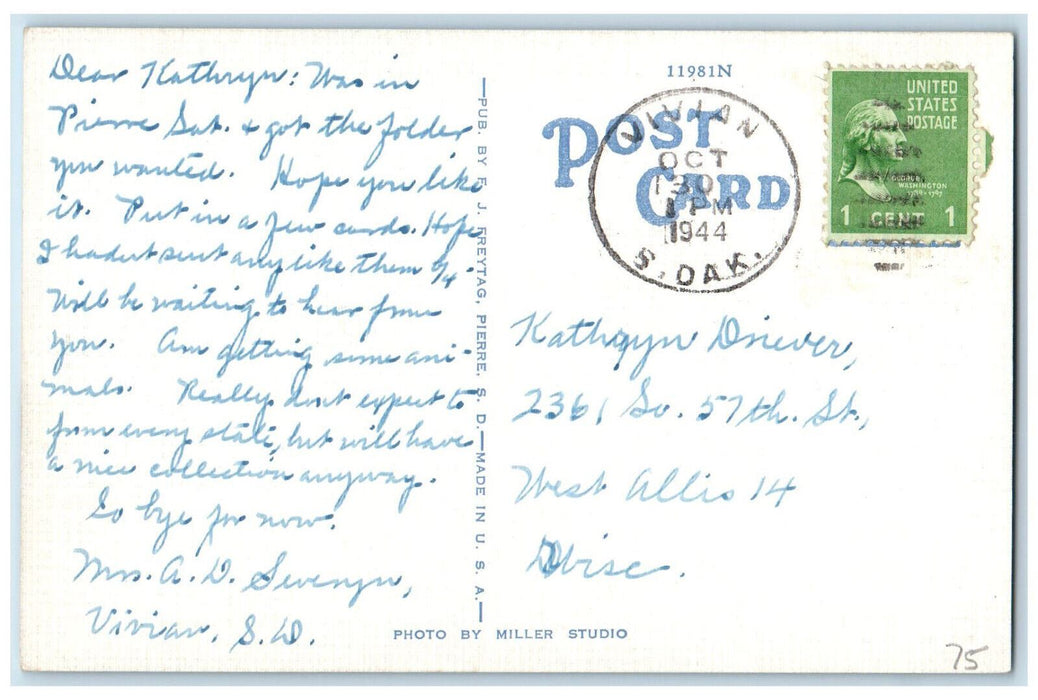 Dear Kathryn: Was in
Pierre Sat. & got the folder
you wanted. Hope you like
it. Put in a few cards. Hope
I hadn't sent any like them
Will be waiting to hear from
you. Am getting some ani-
mals. Really don't expect to
from every state, but will have
a nice collection anyway.
So bye for now.
Mrs. A. D.
Vivian, S.D.
PUB. BY F. J. FREYTAG, PIERRE, S. D.—MADE IN U. S. A.
PHOTO BY MILLER STUDIO
11981N
POST
CARD
VIVIAN
OCT
30
PM
1944
S. DAK.
UNITED
STATES
POSTAGE
GEORGE
WASHINGTON
1789-1797
1 CENT 1
Kathryn Driever,
2361 So. 57th. St.,
West Allis 14
Wisc.
75